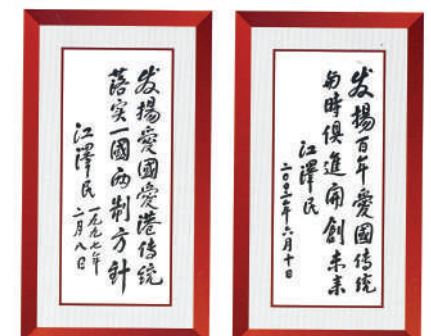 发揚愛國愛港傳统
落实一國两制方針
江澤民
一九九七年
二月八日
发揚百年愛國傳统
与時俱進開創未来
江澤民
二〇〇三年六月十日